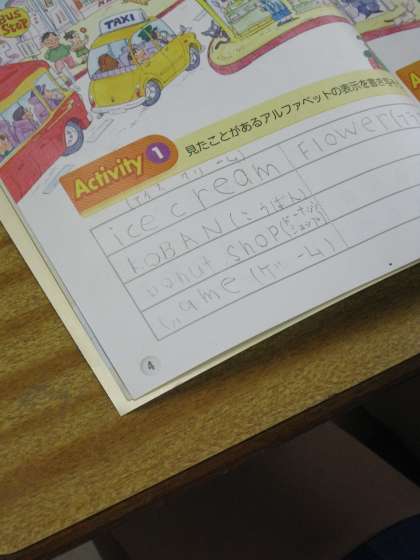 BUS
STOP
TAXI
Activity 1 見たことがあるアルファベットの表示を書き写
ice cream Flower
KOBAN (こうばん)
Donut shop (ドーナツショップ)
Game (ゲーム)
4